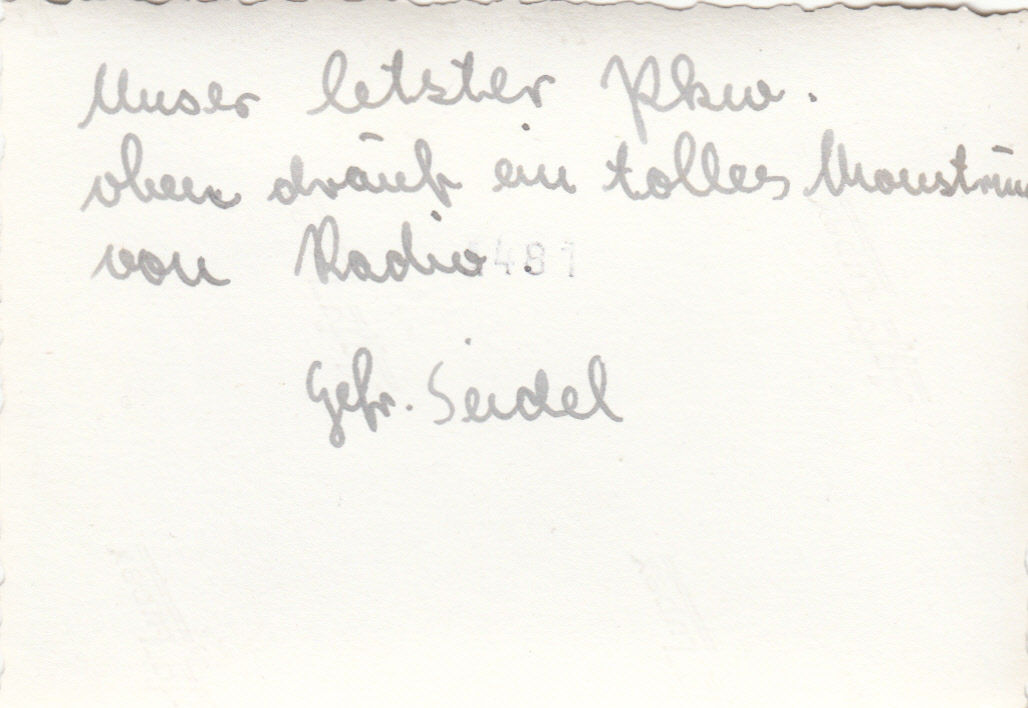 Unser letzter Pkw.
oben drauf ein tolles Monstrum
von Radio.
481
Gefr. Seidel